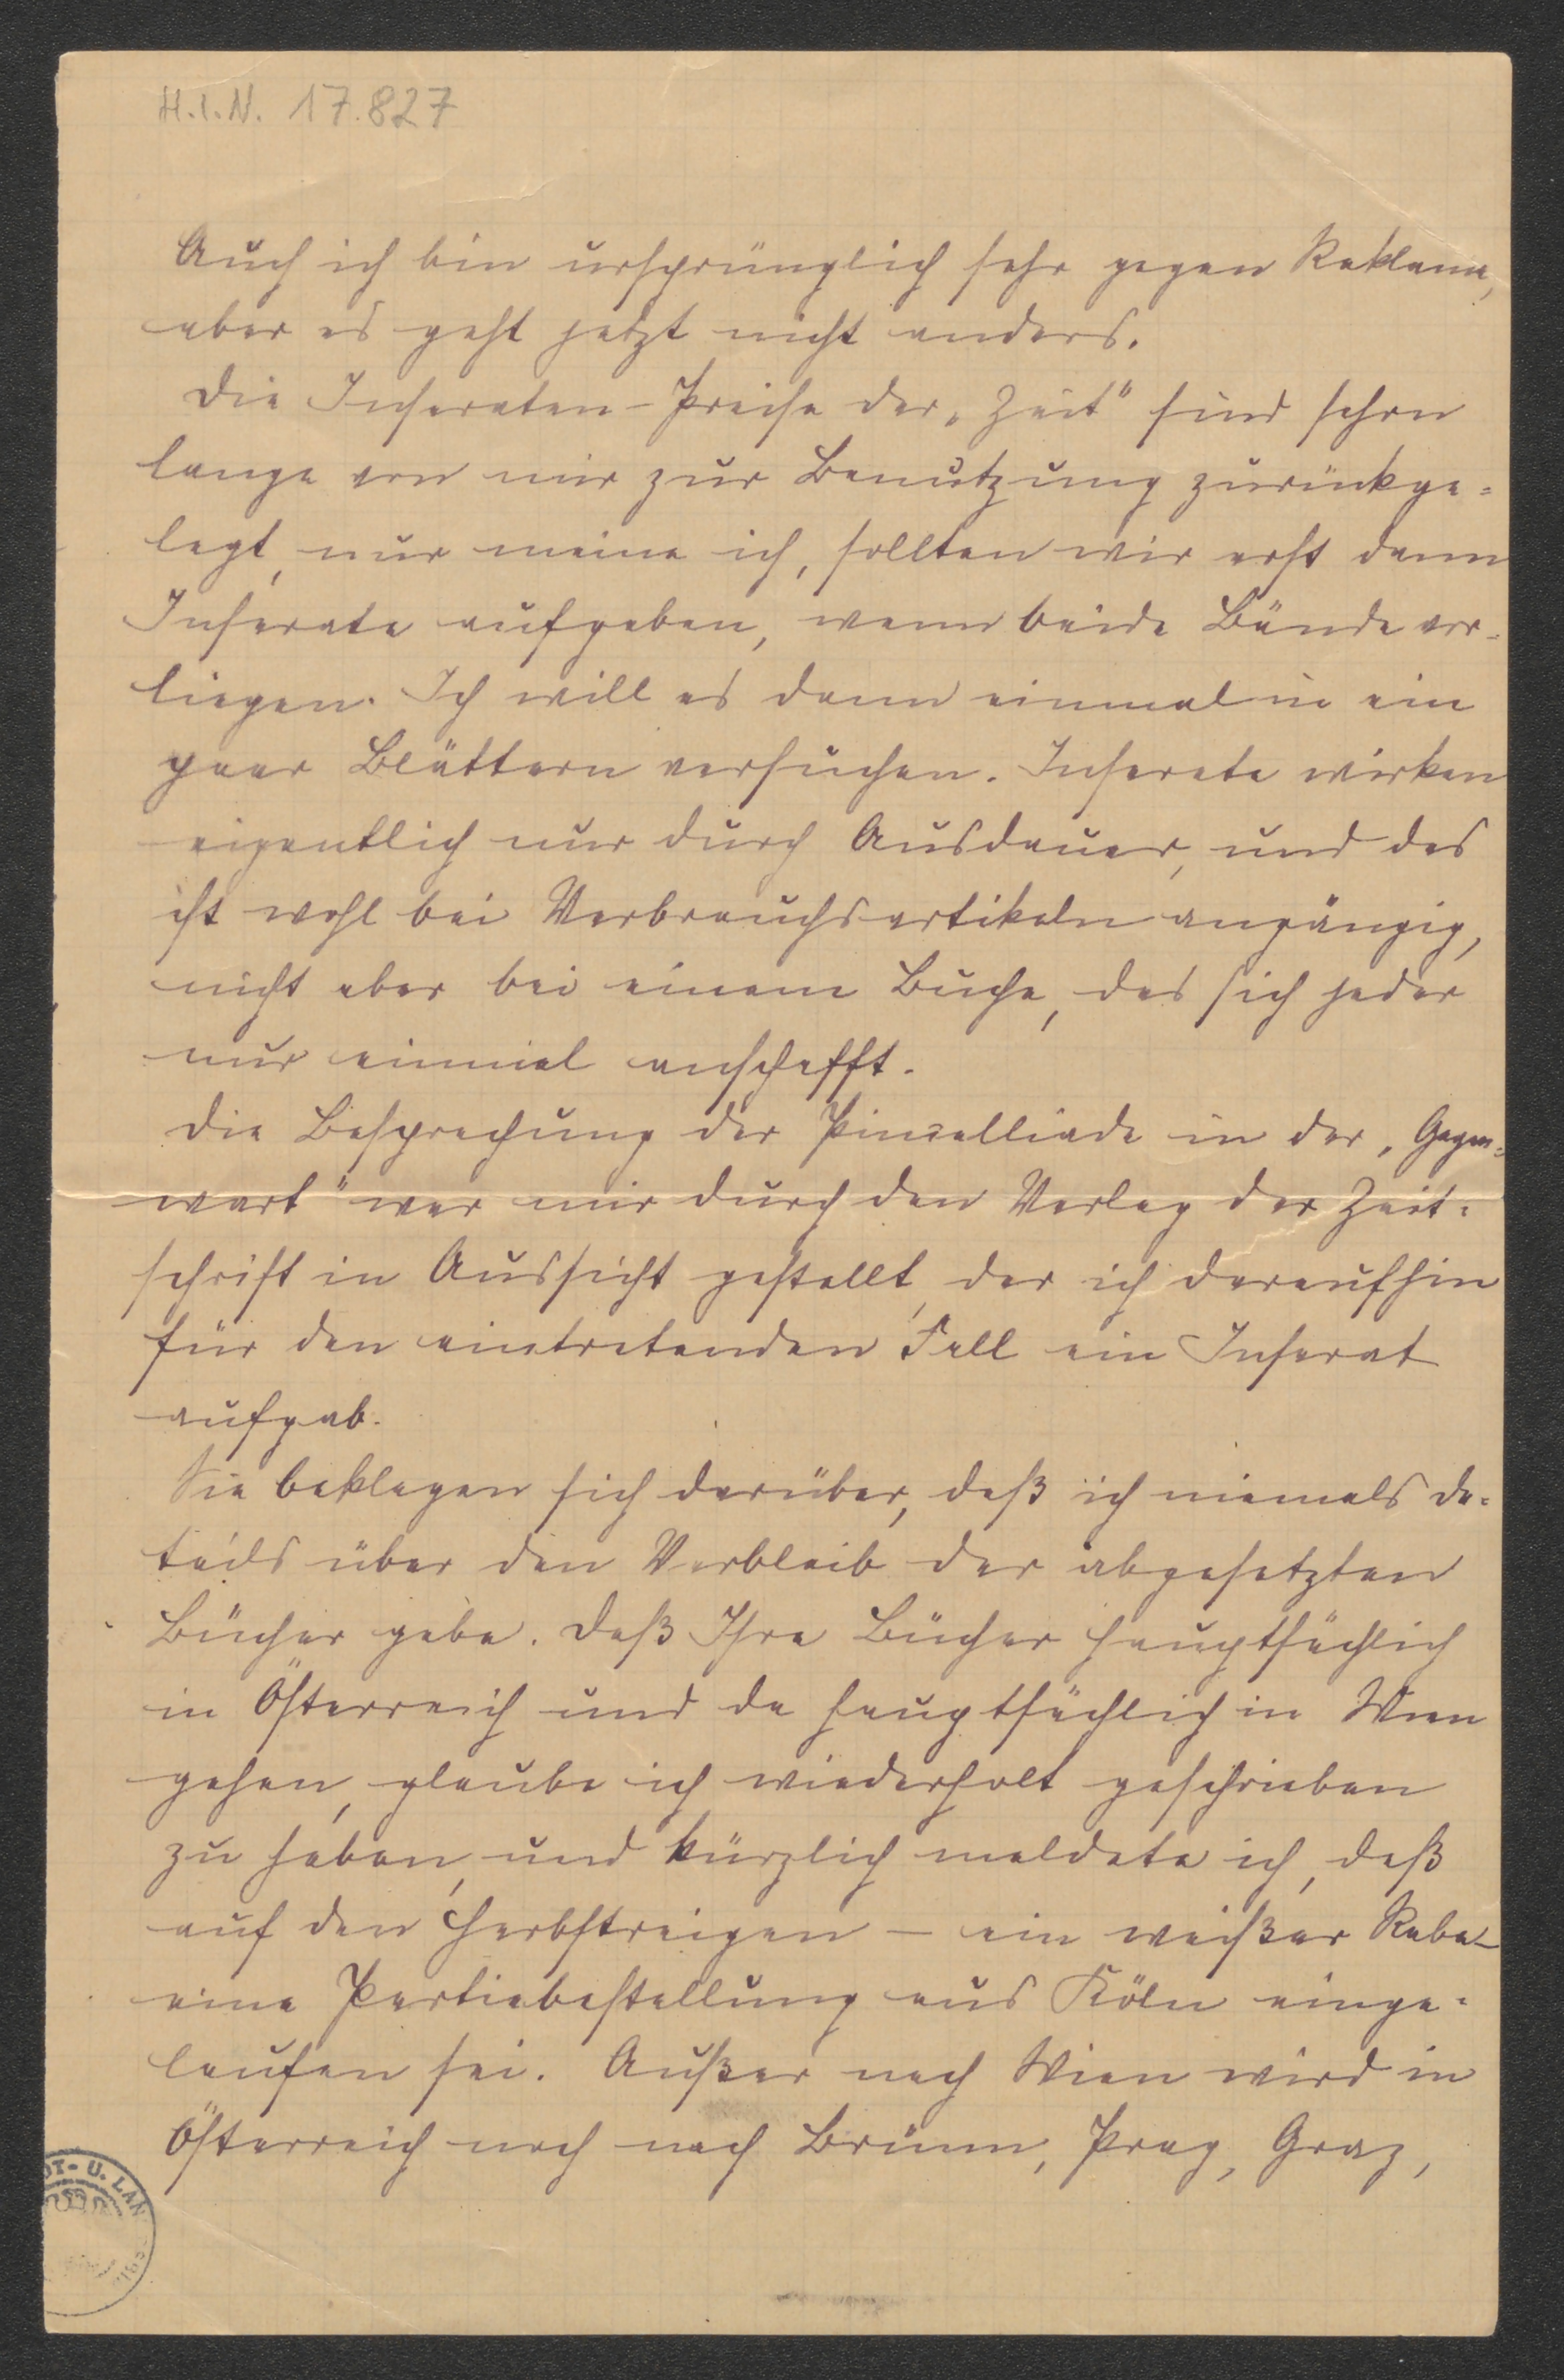 H.I.N. 17.827
Auch ich bin ursprünglich sehr gegen Reklame,
aber es geht jetzt nicht anders.
Die Inseraten-Preise der „Zeit" sind schon
lange von mir zur Benutzung zurückge-
legt, nur meine ich, sollten wir erst dann
Inserate aufgeben, wenn beide Bände vor-
liegen. Ich will es dann einmal in ein
paar Blättern versuchen. Inserate wirken
eigentlich nur durch Ausdauer, und das
ist wohl bei Verbrauchsartikeln angängig,
nicht aber bei einem Buche, das sich jeder
nur einmal anschafft.
Die Besprechung der Pinselliade in der „Gegen-
wart" war mir durch den Verlag der Zeit-
schrift in Aussicht gestellt, der ich daraufhin
für den eintretenden Fall ein Inserat
aufgab.
Sie beklagen sich darüber, daß ich niemals De-
tails über den Verbleib der abgesetzten
Bücher gebe. Daß Ihre Bücher hauptsächlich
in Österreich und da hauptsächlich in Wien
gehen, glaube ich wiederholt geschrieben
zu haben, und kürzlich meldete ich, daß
auf den Herbstreigen – ein weißer Rabe –
eine Partiebestellung aus Köln einge-
laufen sei. Außer nach Wien wird in
Österreich noch nach Brünn, Prag, Graz,